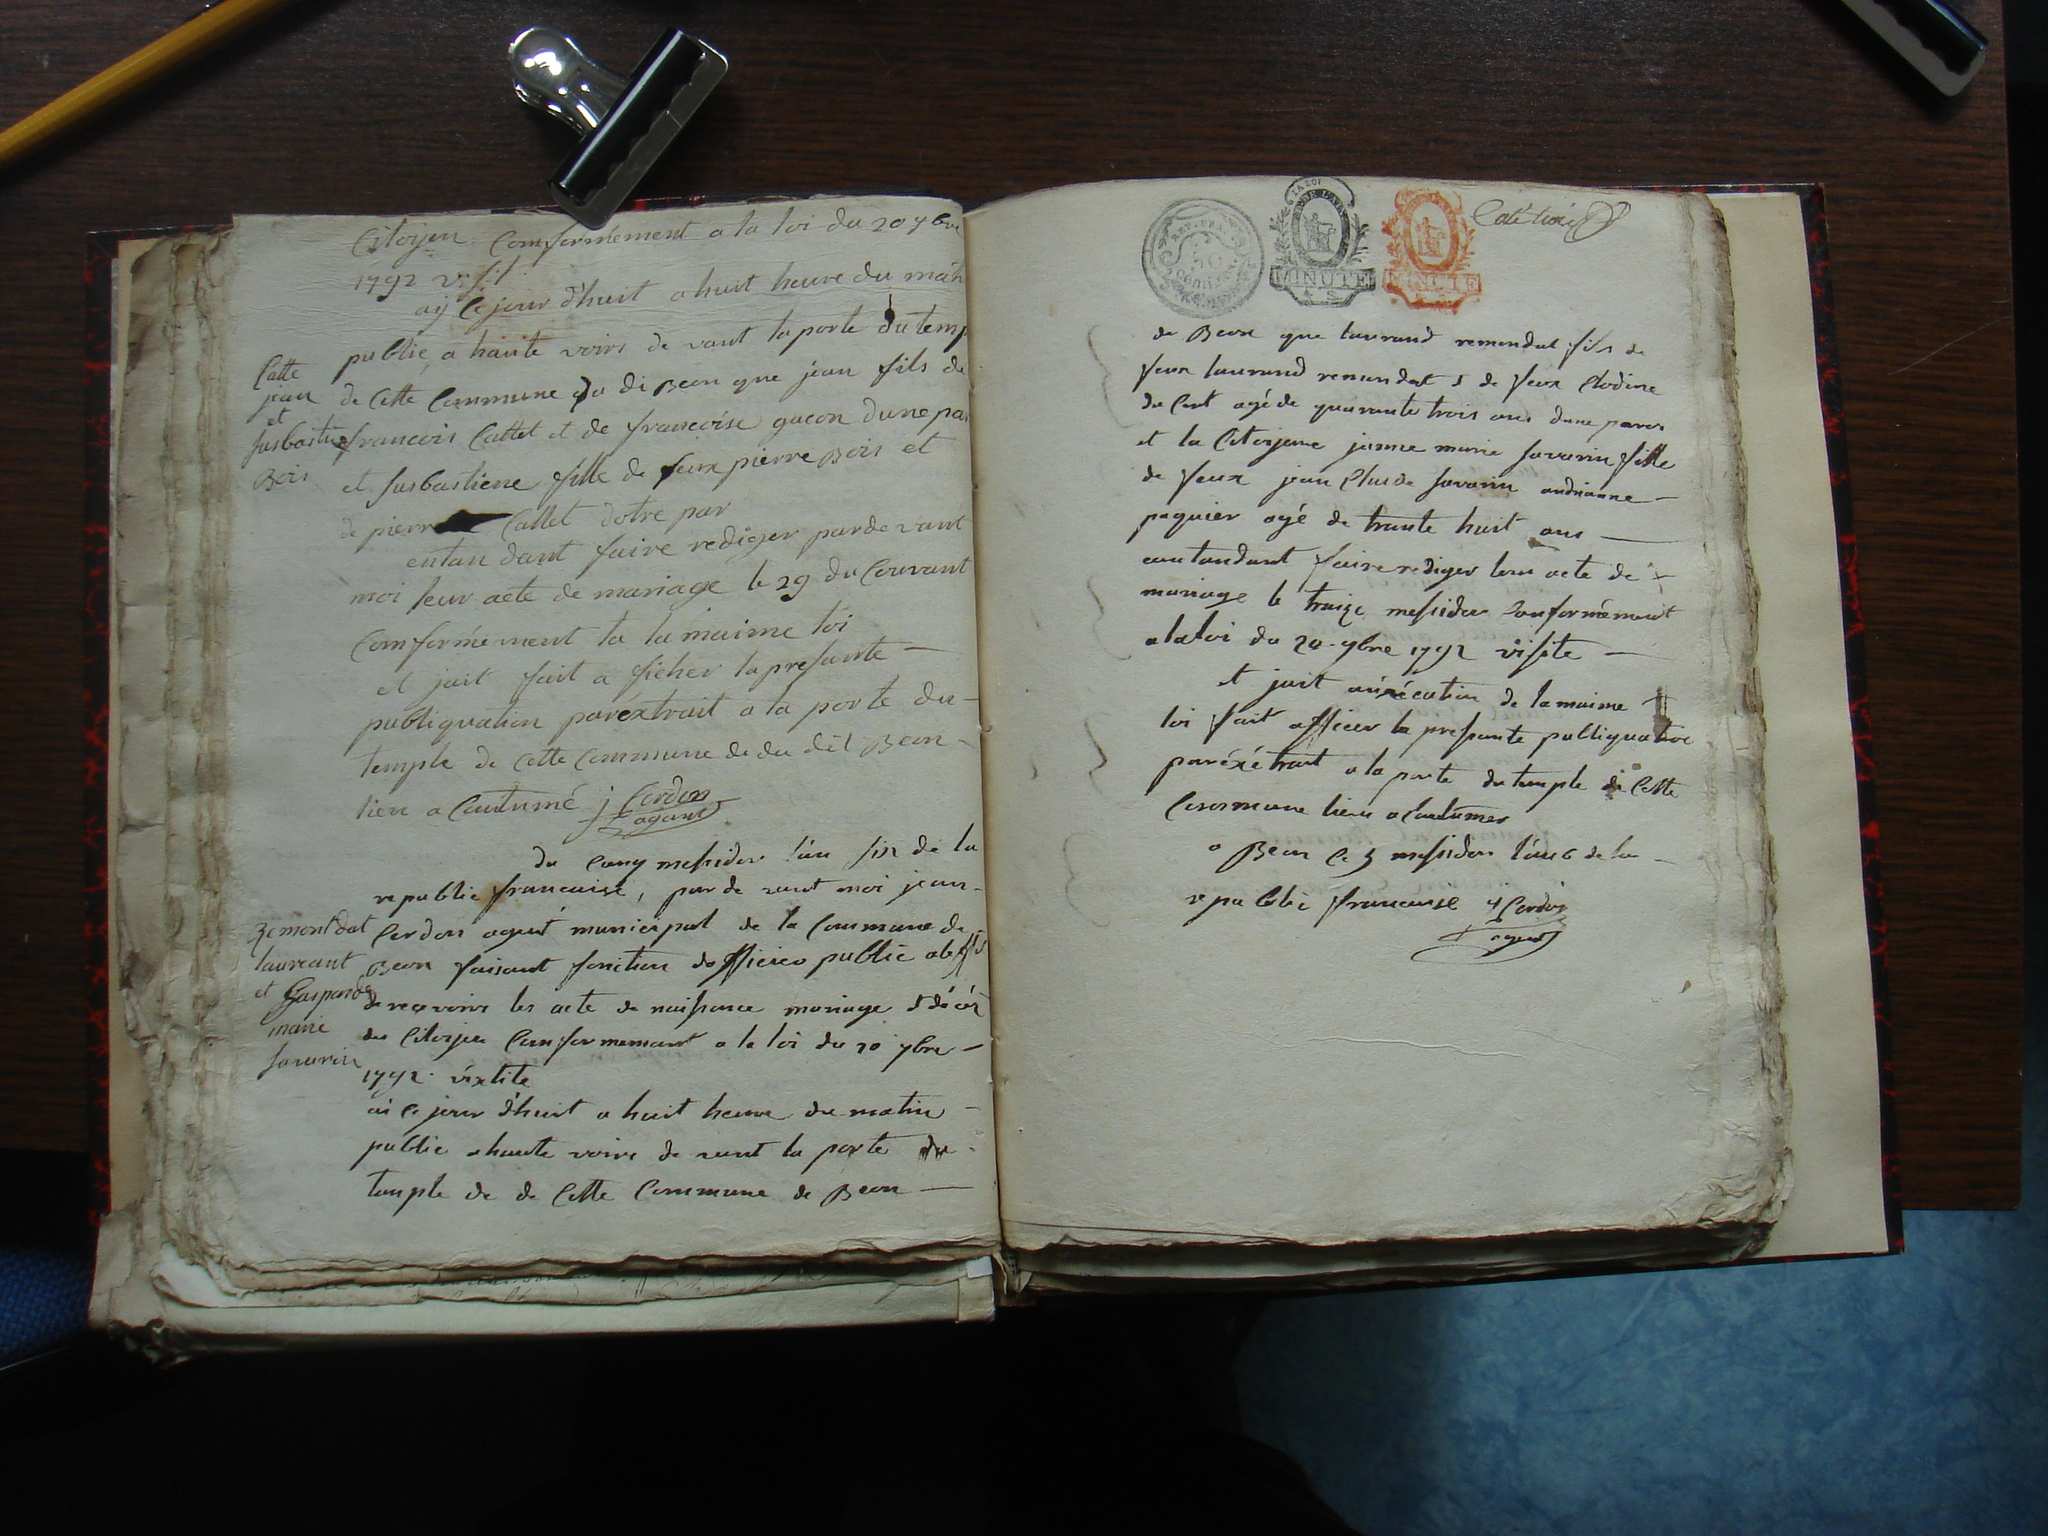 Citoyen Comformement a la loi du 20 7bre
1792 v.s.t.
aÿ Ce jour d'huit a huit heure du matin
public a haute voirs de vant la porte du temp
de Cette Commune du di Beon que jean fils de
francois Cattet et de francoise gacon dune par
et susbastiene fille de feux pierre Bois et
de pierr Callet dotre par
entan dant faire rediger pardevant
moi leur acte de mariage le 29 du Couvant
Comformément ta la maime loi
et jait fait a ficher la presante
publiquation paréxtrait a la porte du
temple de Cette Commune de du dit Beon
lieu a Cautumé j Cerdon
agant
Catte
jean
et
susbastie
Bois
du Cinq messidor l'an six de la
republic francaise, par de vant moi jean
Cerdon agent municipal de la Commune de
Beon faisant fonction dofficiee public
de recevoirs les acte de naissance mariage et décés
des Citoijen Comformemant a la loi du 20 7bre
1792 vixtite
ai Ce jour d'huit a huit heure du matin
public a haute voirs de vant la porte du
temple de de Cette Commune de Beon
Remontdat
laureant
et Gasparde
marie
savarin
REP. FRA.
50
Centimes
LA LOI
MINUTE
MINUTE
de Beon que laurand remondat fils de
feux laurand remondat et de feux Clodine
du Cert agé de quarante trois ans dune pares
et la Citoijene janne marie savarin fille
de feux jean Clude savarin andrianne
paquier agé de trante huit ans
eantandant faire rediger leur acte de
mariage le traize messidor Comformémant
a la loi du 20 7bre 1792 visite
et jait anéxécution de la maime
loi fait afficer la presante publiquation
paréxétrait a la porte du temple de Cette
Commune lieu a Cautumer
a Beon Ce 5 messidor l'an 6 de la
republic francaise j Cerdon
agent